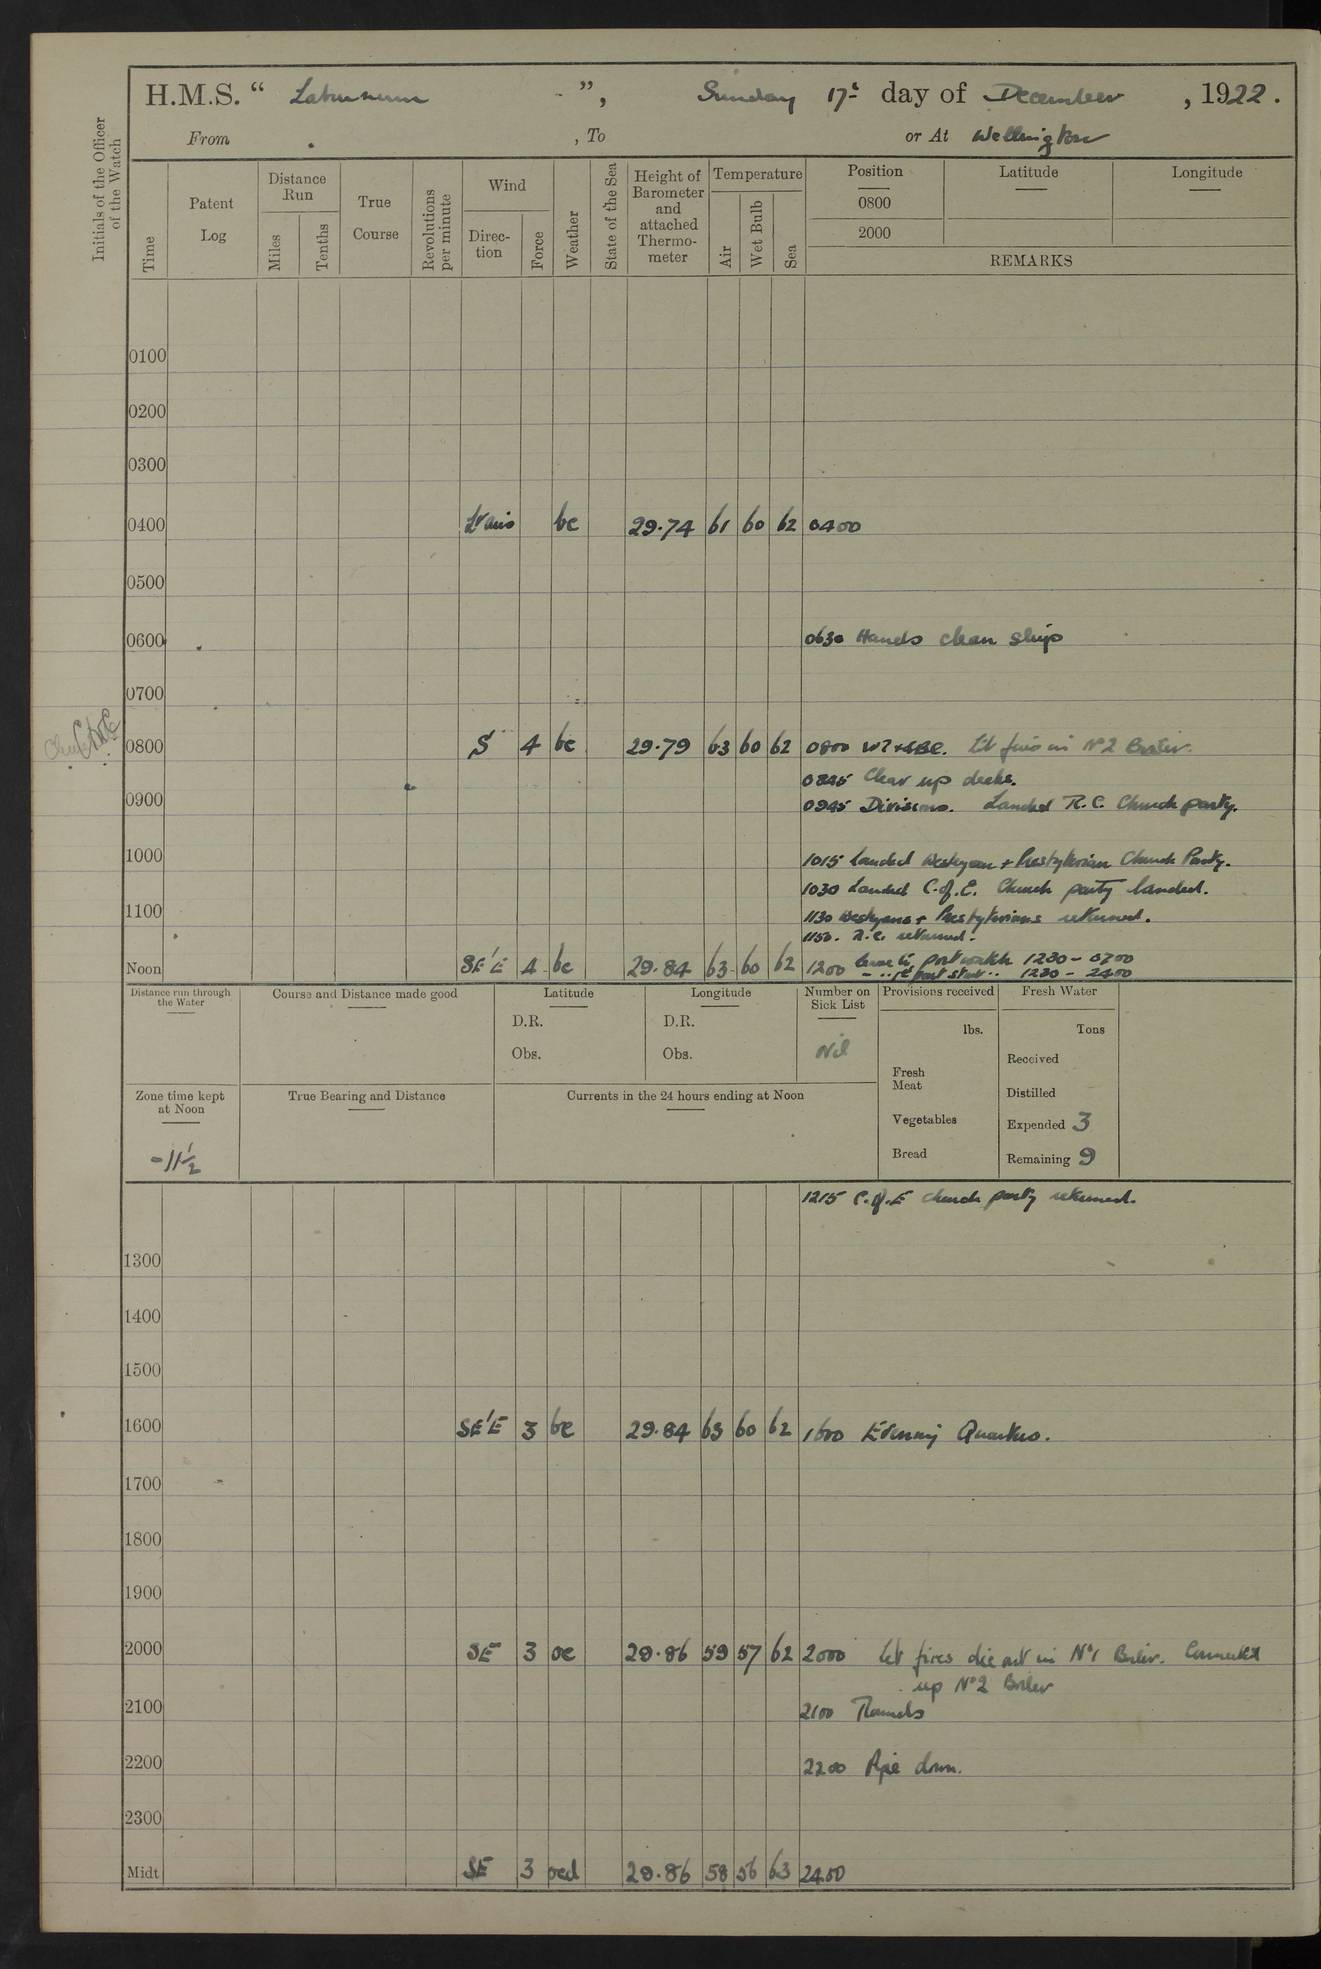 H.M.S. " Laburnum - ", Sunday 17th day of December , 1922.
From , To or At Wellington
Initials of the Officer of the Watch
Time
Patent Log
Distance Run
Miles
Tenths
True Course
Revolutions per minute
Wind
Direc-tion
Force
Weather
State of the Sea
Height of Barometer and attached Thermo-meter
Temperature
Air
Wet Bulb
Sea
Position
0800
2000
Latitude
Longitude
REMARKS
0100
0200
0300
0400 Lt airs bc 29.74 61 60 62 0400
0500
0600 0630 Hands clean ship
0700
0800 S 4 bc 29.79 63 60 62 0800 Lit fires in No 2 Boiler.
0845 Clear up decks.
0900 0945 Divisions. Landed R.C. Church party.
1000 1015 Landed Wesleyan + Presbyterian Church Party.
1030 Landed C. of. E. Church party landed.
1100 1130 Wesleyans + Presbyterians returned.
1150. R.C. returned.
Noon SE'E 4 bc 29.84 63 60 62 1200 Leave to port watch 1230 - 0700
- " 1st part star " 1230 - 2400
Distance run through the Water
Course and Distance made good
Latitude
D.R.
Obs.
Longitude
D.R.
Obs.
Number on Sick List
Nil
Provisions received
lbs.
Fresh Meat
Vegetables
Bread
Fresh Water
Tons
Received
Distilled
Expended 3
Remaining 9
Zone time kept at Noon
-11½
True Bearing and Distance
Currents in the 24 hours ending at Noon
1215 C. of. E church party returned.
1300
1400
1500
1600 SE'E 3 bc 29.84 63 60 62 1600 Evening Quarters.
1700
1800
1900
2000 SE 3 oc 29.86 59 57 62 2000 Let fires die out in No 1 Boiler. Connected
up No 2 Boiler
2100 2100 Rounds
2200 2200 Pipe down.
2300
Midt SE 3 ocd 29.86 58 56 63 2400